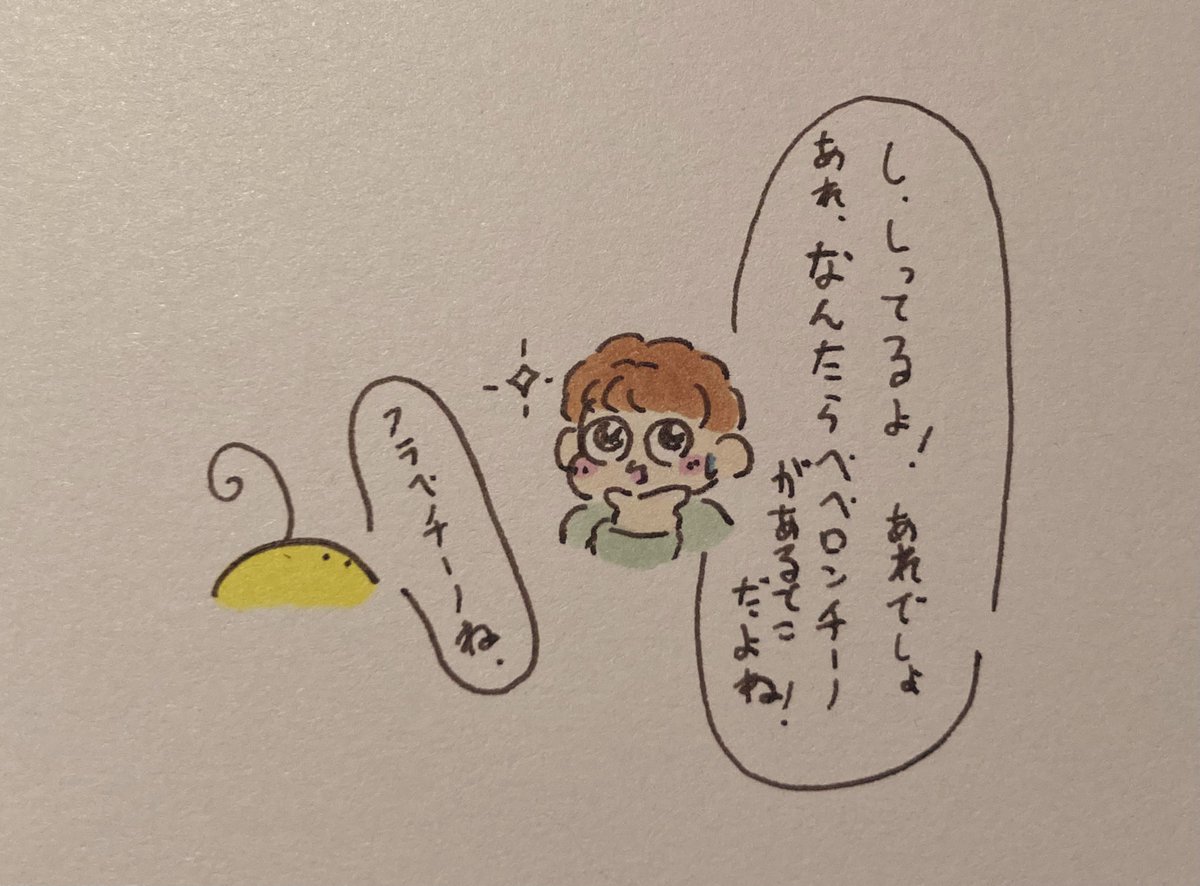 し、しってるよ! あれでしょ
あれ、なんたらペペロンチーノ
があるてこ
だよね!
アラベチーノね.